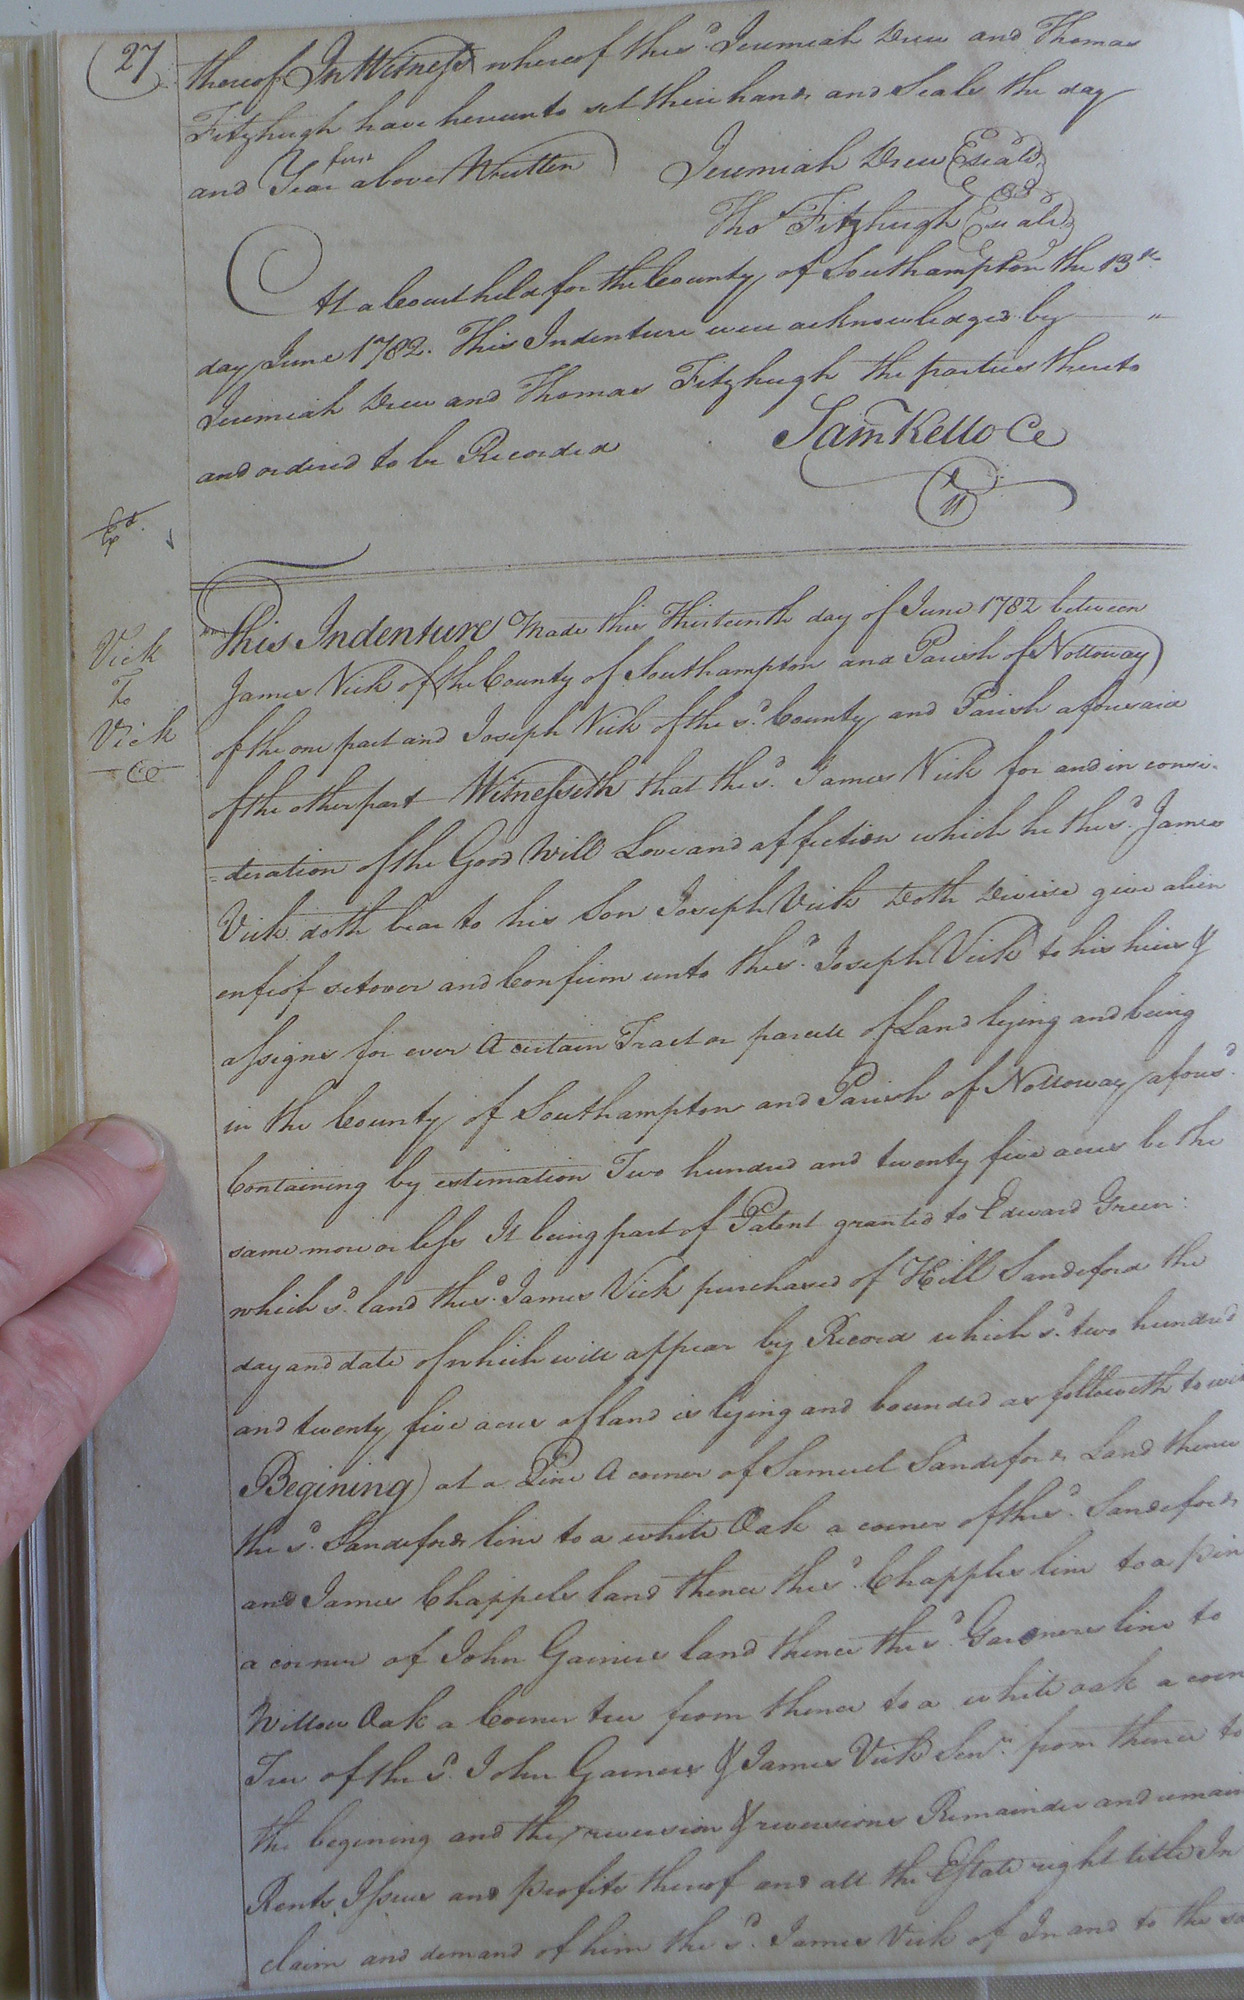 27
thereof In Witness whereof the sd. Jeremiah Drew and Thomas
Fitzhugh have hereunto set their hands and Seals the day
and Year first above Written
Jeremiah Drew (Seald)
Thos Fitzhugh (Seald)
At a Court held for the County of Southampton the 13th
day June 1782. This Indenture were acknowledged by
Jeremiah Drew and Thomas Fitzhugh the parties thereto
and ordered to be Recorded
Sam Kello Cc
Exd.
Vick
To
Vick
This Indenture Made this Thirteenth day of June 1782 between
James Vick of the County of Southampton and Parish of Nottoway
of the one part and Joseph Vick of the sd. County and Parish aforesaid
of the other part Witnesseth that the sd. James Vick for and in consi-
=deration of the Good Will Love and affection which he the sd. James
Vick doth bear to his Son Joseph Vick Doth Devise give alien
enfeof setover and Confirm unto the sd. Joseph Vick to his heirs &
assigns for ever A certain Tract or parcell of Land lying and being
in the County of Southampton and Parish of Nottoway aforesd.
Containing by estimation Two hundred and twenty five acres be the
same more or less It being part of Patent granted to Edward Green:
which sd. land the sd. James Vick purchased of Hill Sandeford the
day and date of which will appear by Record which sd. two hundred
and twenty five acres of land is lying and bounded as followeth to wit
Begining at a Pine A corner of Samuel Sandefords Land thence
the sd. Sandefords line to a white Oak a corner of the sd. Sandefords
and James Chappels land thence the sd. Chapples line to a pin
a corner of John Gainers land thence the sd. Gardners line to
Willow Oak a Corner tree from thence to a white oak a corn
Tree of the sd. John Gainers & James Vick Senr. from thence to
the begining and the reversion & reversions Remainder and remain
Rents Issues and profits thereof and all the Estate right title In
claim and demand of him the sd. James Vick of In and to the sd